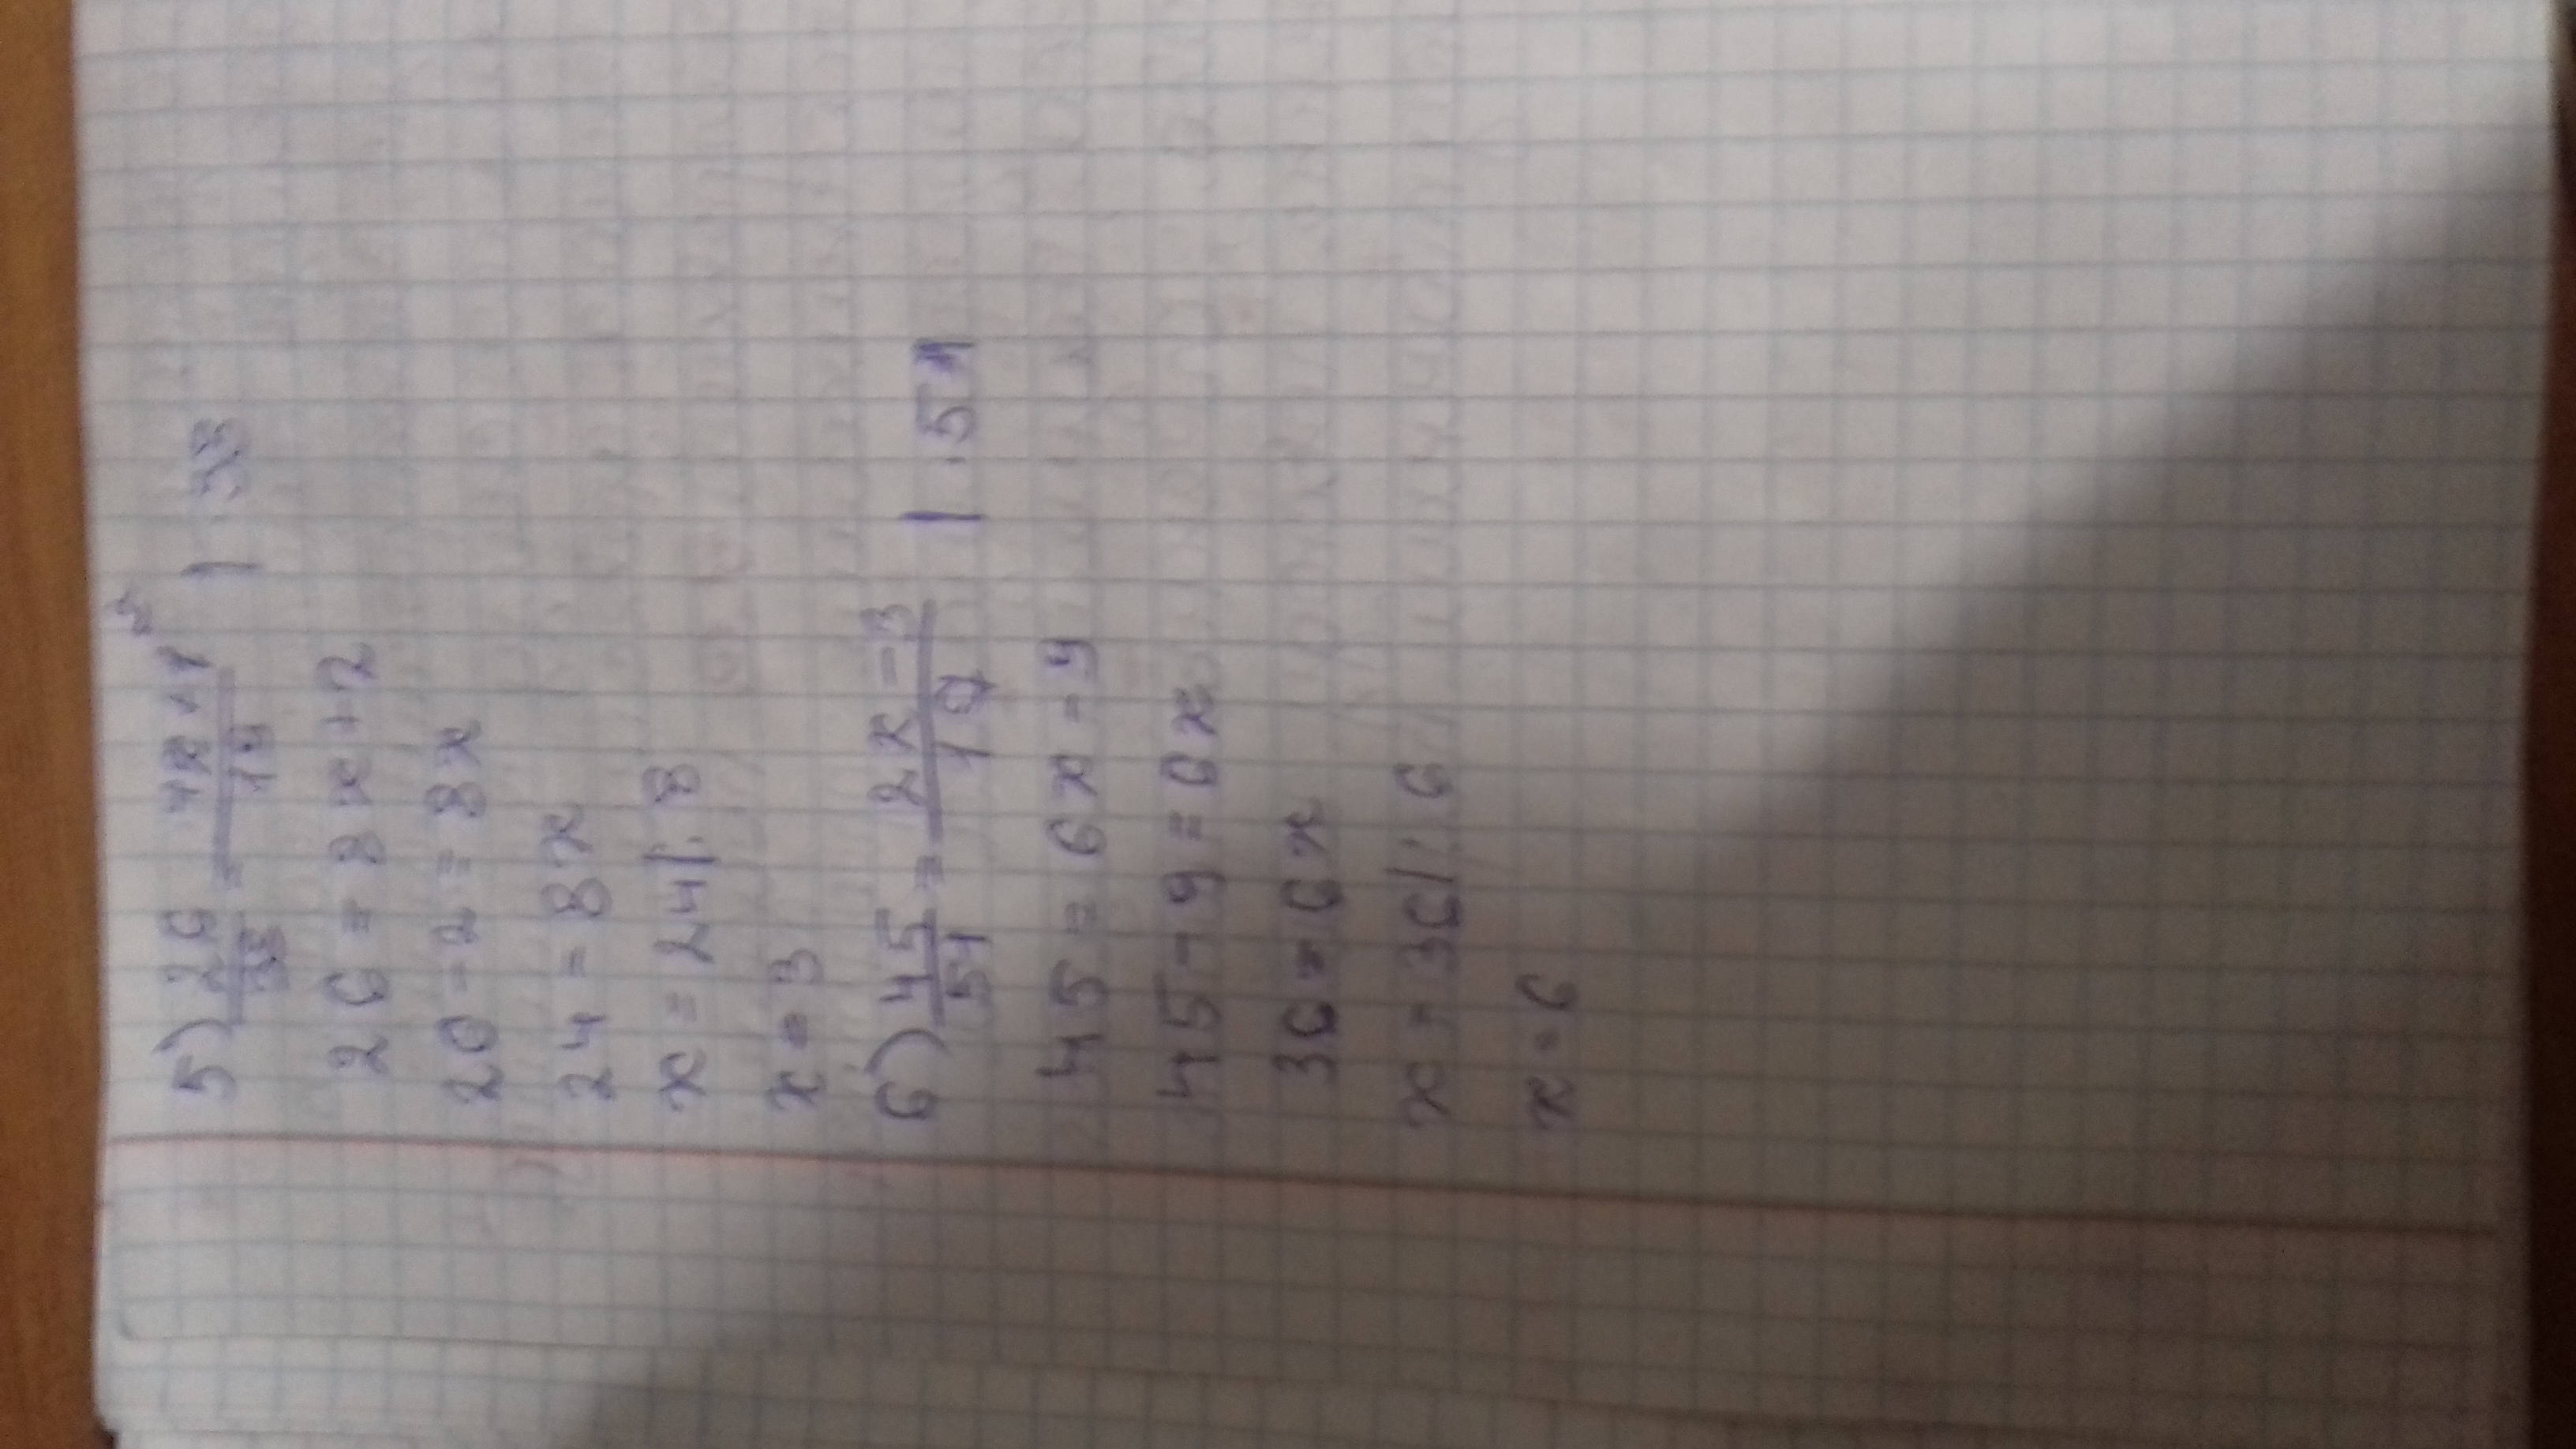 5) 26/38 = 4x+1/19 | · 38
26 = 8x+2
26-2 = 8x
24 = 8x
x = 24 | : 8
x = 3
6) 45/54 = 2x-3/18 | · 54
45 = 6x-9
45-9 = 6x
36 = 6x
x = 36 | : 6
x = 6